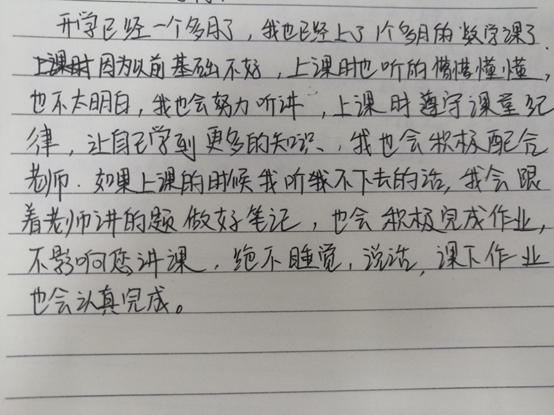 开学已经一个多月了，我也已经上了1个多月的数学课了.
上课时因为以前基础不好，上课时也听的懵懵懂懂，
也不太明白，我也会努力听讲，上课时遵守课堂纪
律，让自己学到更多的知识、我也会积极配合
老师.如果上课的时候我听我不下去的话，我会跟
着老师讲的题做好笔记，也会积极完成作业，
不影响您讲课，绝不睡觉，说话，课下作业
也会认真完成。